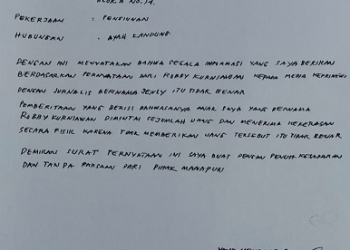 BLOK A NO. 14.
PEKERJAAN : PENSIUNAN
HUBUNGAN : AYAH KANDUNG
DENGAN INI MENYATAKAN BAHWA SEGALA INFORMASI YANG SAYA BERIKAN
BERDASARKAN PERNYATAAN DARI ROBBY KURNIAWAN KEPADA MEDIA
DENGAN JURNALIS BERNAMA JERLY ITU TIDAK BENAR
PEMBERITAAN YANG BERISI BAHWASANYA ANAK SAYA YANG BERNAMA
ROBBY KURNIAWAN DIMINTAI SEJUMLAH UANG DAN MENERIMA KEKERASAN
SECARA FISIK KARENA TIDAK MEMBERIKAN UANG TERSEBUT ITU TIDAK BENAR
DEMIKIAN SURAT PERNYATAAN INI SAYA BUAT DENGAN PENUH KESADARAN
DAN TANPA PAKSAAN DARI PIHAK MANAPUN